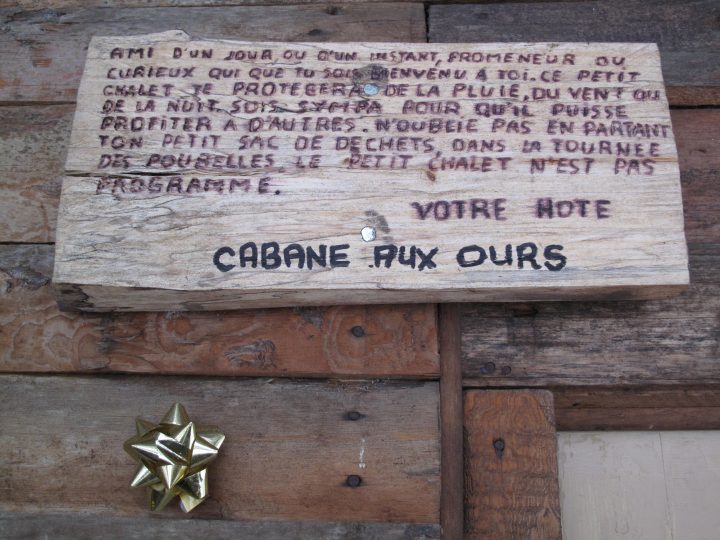 AMI D'UN JOUR OU D'UN INSTANT, PROMENEUR OU
CURIEUX QUI QUE TU SOIS BIENVENU A TOI. CE PETIT
CHALET TE PROTEGERA DE LA PLUIE, DU VENT OU
DE LA NUIT. SOIS SYMPA POUR QU'IL PUISSE
PROFITER A D'AUTRES. N'OUBLIE PAS EN PARTANT
TON PETIT SAC DE DECHETS, DANS LA TOURNEE
DES POUBELLES, LE PETIT CHALET N'EST PAS
PROGRAMME.
VOTRE HOTE
CABANE AUX OURS